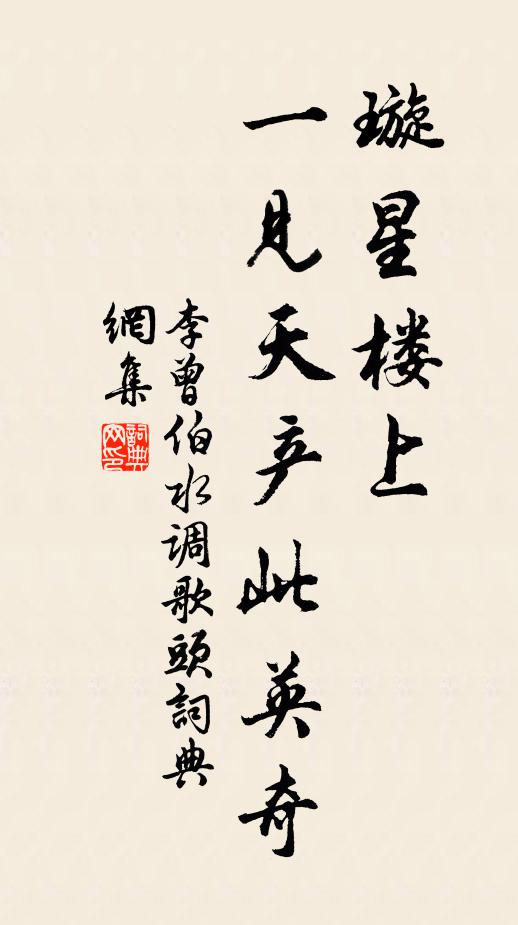 璇星楼上
一见天产此英奇
李曾伯水调歌头詞典
網集
詞典
网印